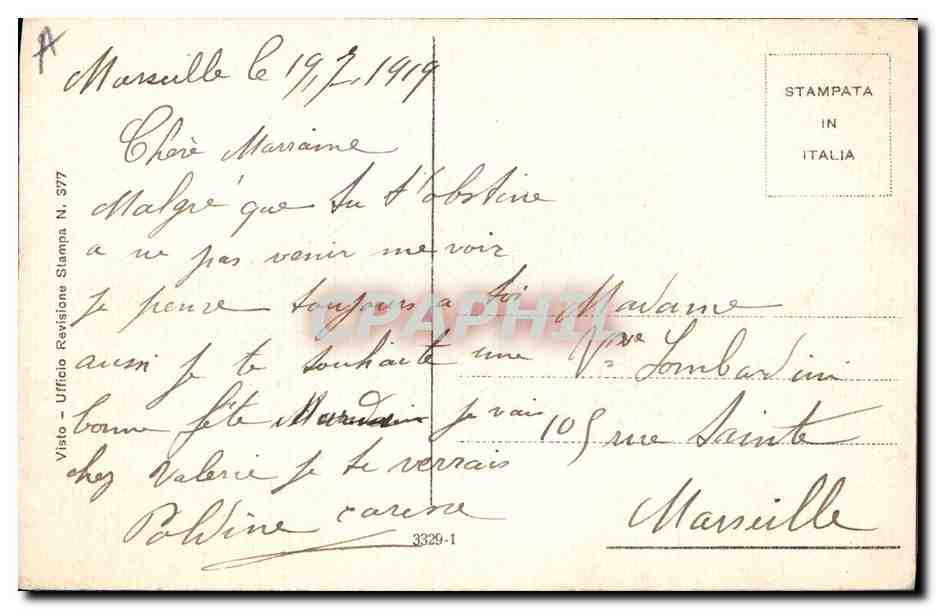 A
Marseille le 19, 7, 1919
Chère Marraine
Malgré que tu t'obstine
a ne pas venir me voir
je pense toujours a toi
aussi je te souhaite une
bonne fête je vais
chez Valerie je te verrais
Poldine
3329-1
Visto - Ufficio Revisione Stampa N. 377
STAMPATA
IN
ITALIA
Madame
Vve Lombardini
105 rue Sainte
Marseille
DELCAMPHIL